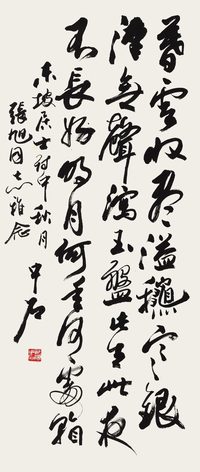 暮雲收盡溢寒銀
漢無聲玉盤此生此夜
不長好明月何處看
東坡居士詩中秋月
張旭同志雅念
中石